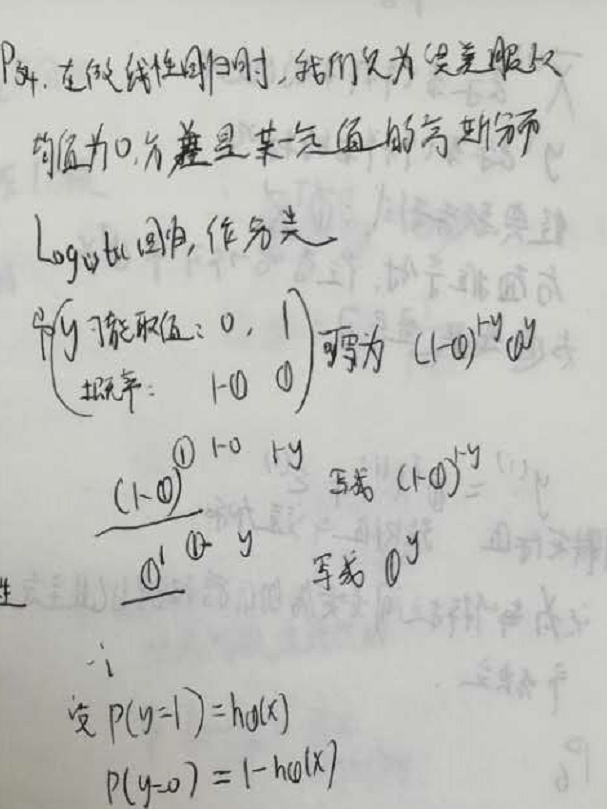 P34. 在做线性回归时，我们认为误差服从
均值为0,方差是某定值的高斯分布
Logistic 回归, 作分类
y可能取值: 0, 1 可写为 (1-θ)^{1-y} θ^y
概率: 1-θ θ
(1-θ)^① 1-0 1-y 写成 (1-θ)^{1-y}
θ^1 y 写成 θ^y
设 P(y=1) = hθ(x)
P(y=0) = 1-hθ(x)